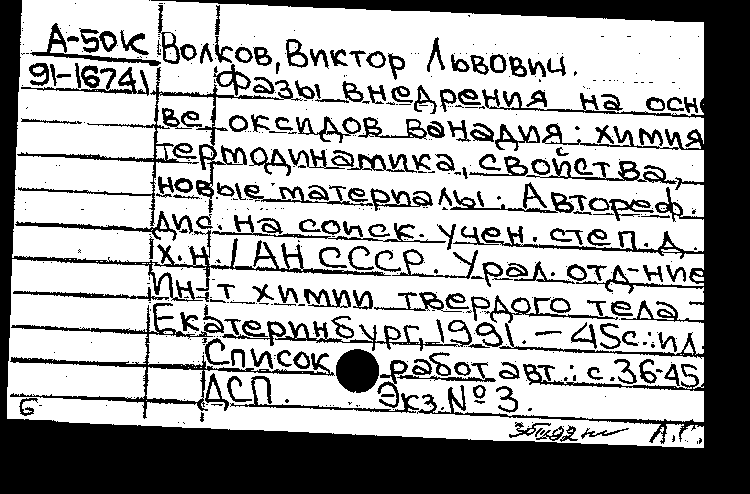 А-50К Волков, Виктор Львович.
91-16741 Фазы внедрения на осно
ве оксидов ванадия: химия
термодинамика, свойства,
новые материалы: Автореф.
дис. на соиск. учен. степ. д.
х.н. / АН СССР. Урал. отд-ние
Ин-т химии твердого тела -
Екатеринбург, 1991. — 45с.: ил.
Список работ авт.: с. 36-45
ДСП. Экз. № 3.
Б
А.С.